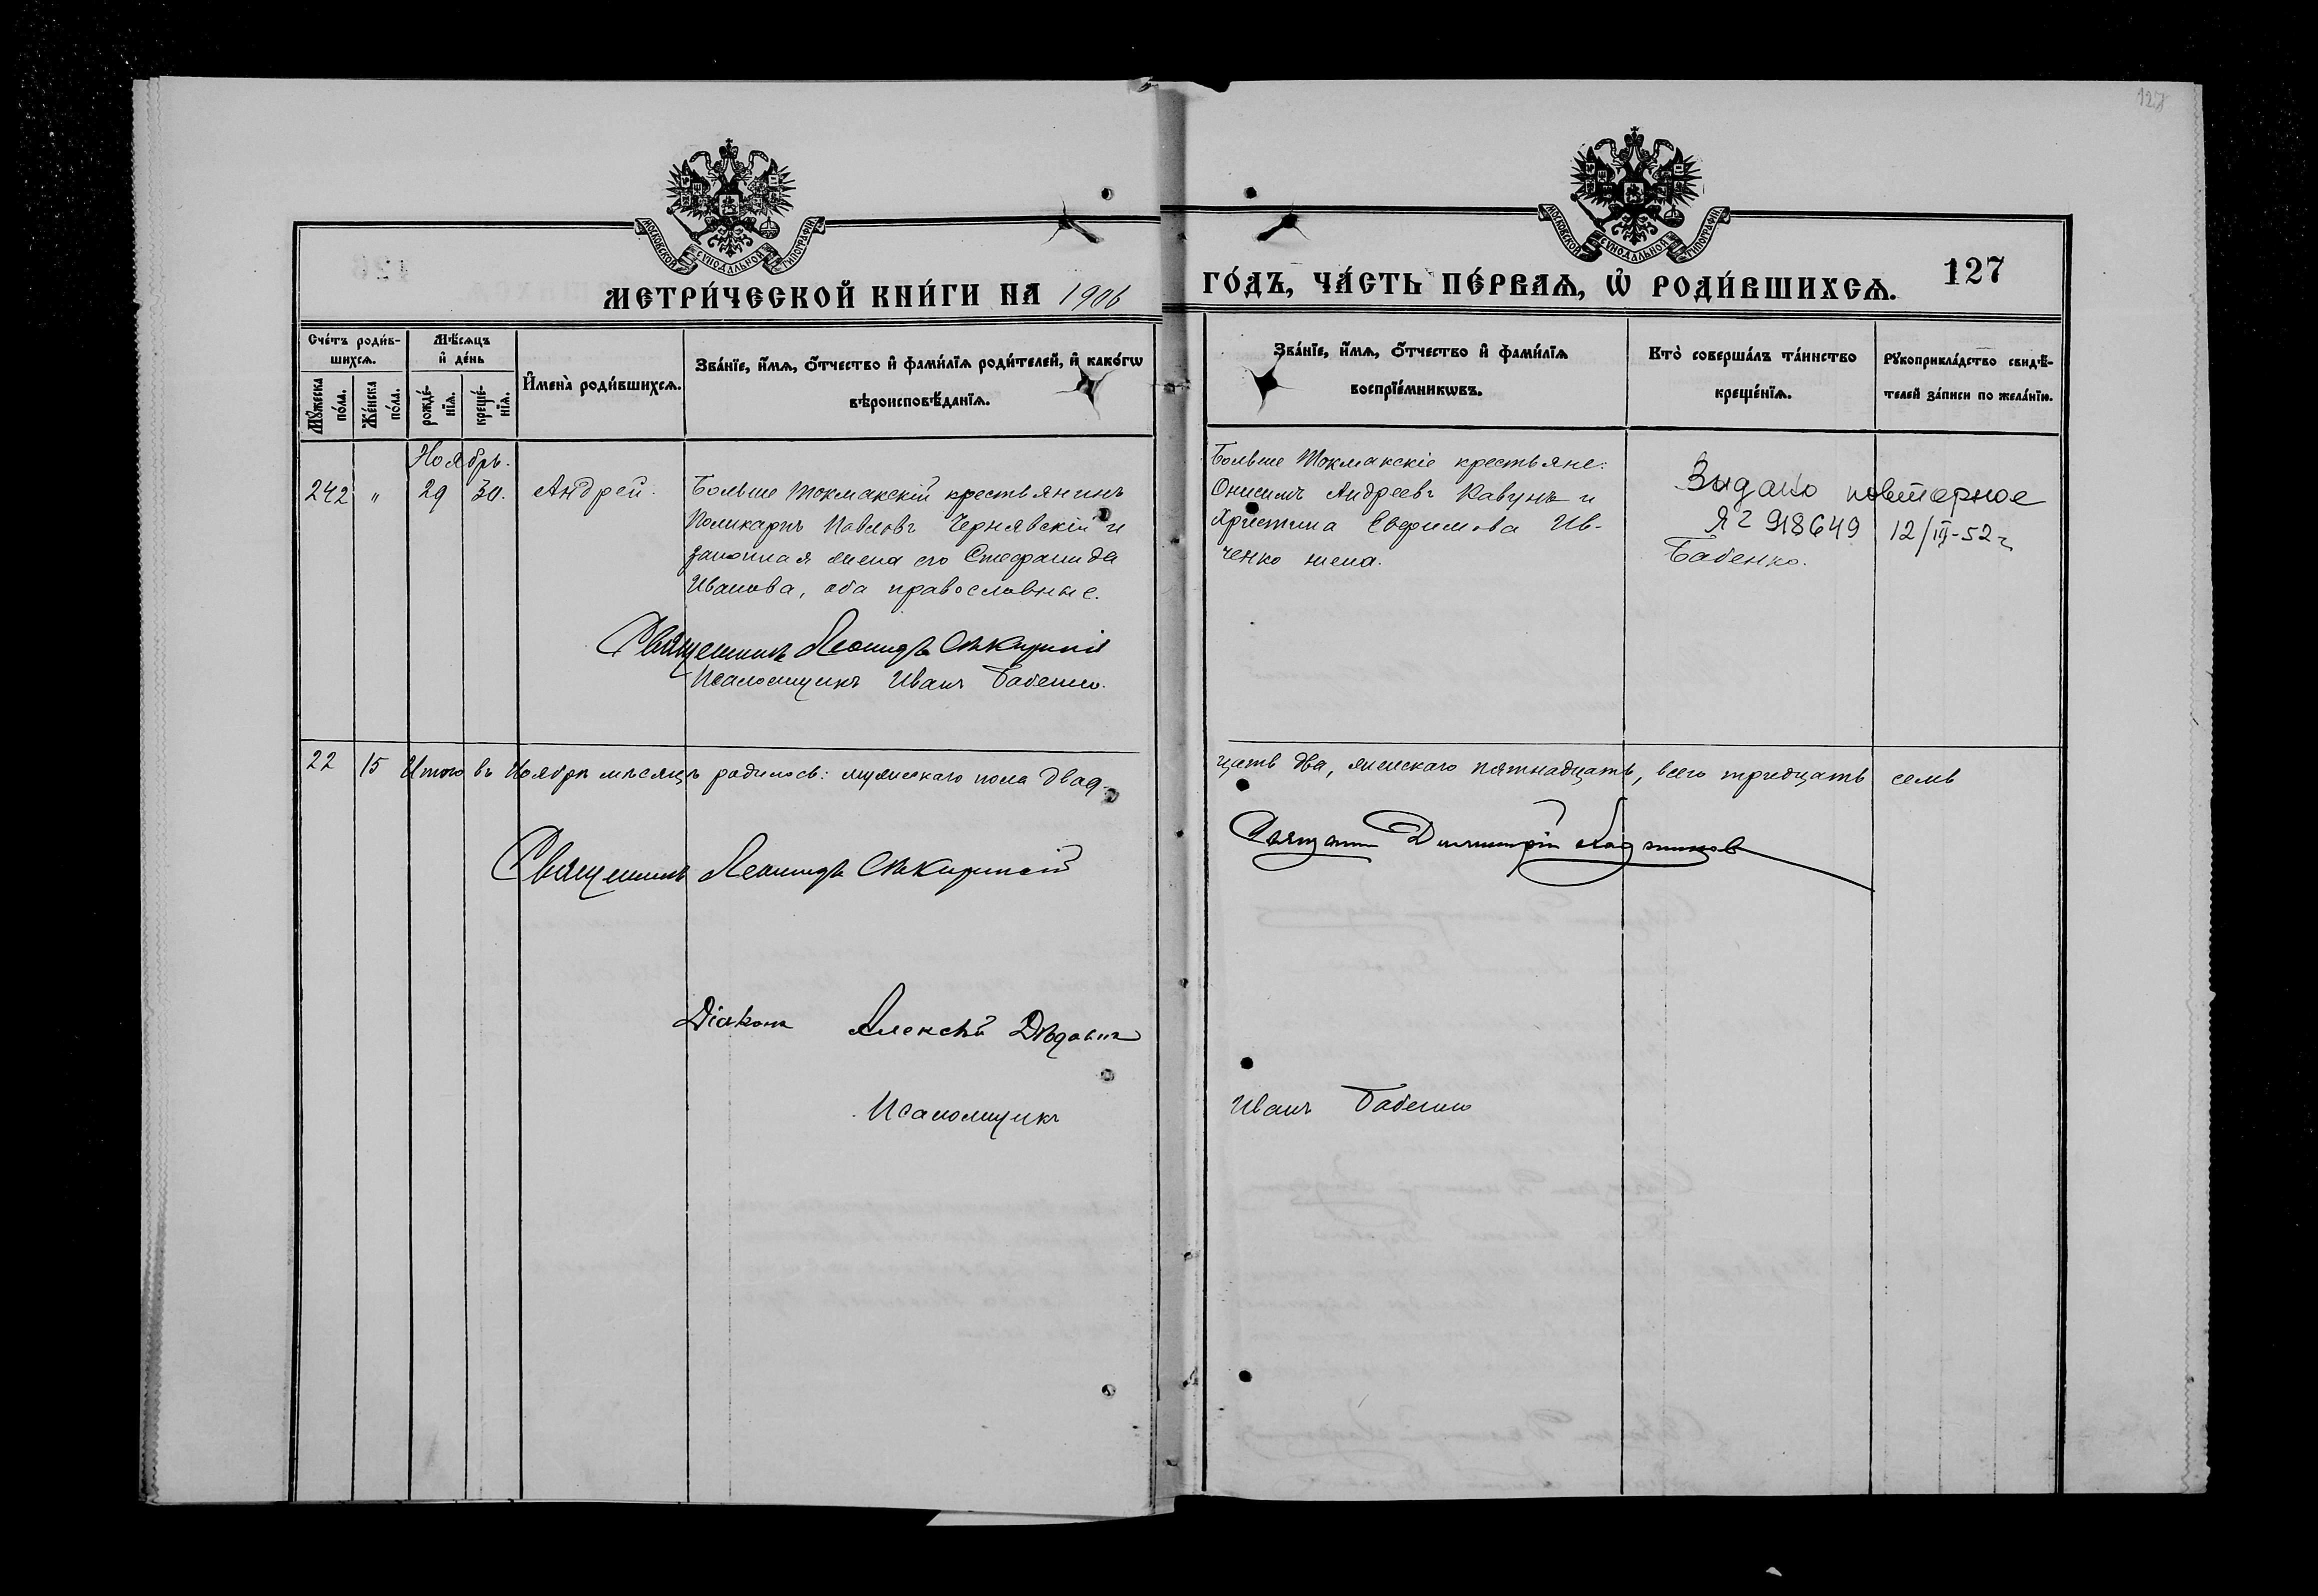 127
МОСКОВСКОЙ СѴНОДАЛЬНОЙ ТИПОГРАФІИ
МОСКОВСКОЙ СѴНОДАЛЬНОЙ ТИПОГРАФІИ
МЕТРИ́ЧЕСКОЙ КНИ́ГИ НА 1906
ГО́ДЪ, ЧА́СТЬ ПЕ́РВАѦ, Ѡ҆ РОДИ́ВШИХСѦ.
127
Сче́тъ роди́в-
шихсѧ.
Мꙋ́жеска
по́ла.
Же́нска
по́ла.
Мѣ́сѧцъ
и҆ де́нь
рожде́-
нїѧ.
креще́-
нїѧ.
И҆мена̀ роди́вшихсѧ.
Зва́нїе, и҆́мѧ, ѻ҆́тчество и҆ фами́лїѧ роди́телей, и҆ како́гѡ
вѣроисповѣ́данїѧ.
Зва́нїе, и҆́мѧ, ѻ҆́тчество и҆ фами́лїѧ
воспрїе́мникѡвъ.
Кто̀ соверша́лъ та́инство
креще́нїѧ.
Рꙋкоприкла́дство свидѣ́-
телей за́писи по жела́нїю.
Ноябрь.
242 " 29 30. Андрей.
Больше Токмакскій крестьянинъ
Поликарпъ Павловъ Чернявскій и
законная жена его Стефанида
Иванова, оба православные.
Священникъ Леонидъ
Псаломщикъ Иванъ Бабенко.
Больше Токмакскіе крестьяне:
Онисимъ Андреевъ Кавунъ и
Христина Евфимова Ив-
ченко жена.
Видано повторное
918649 12/III-52 г
Бабенко.
22 15 Итого въ Ноябрѣ мѣсяцѣ родилось: мужескаго пола двад-
цать два, женскаго пятнадцать, всего тридцать семь
Священникъ Леонидъ
Священникъ Димитрій
Діаконъ Алексѣй
Псаломщикъ Иванъ Бабенко